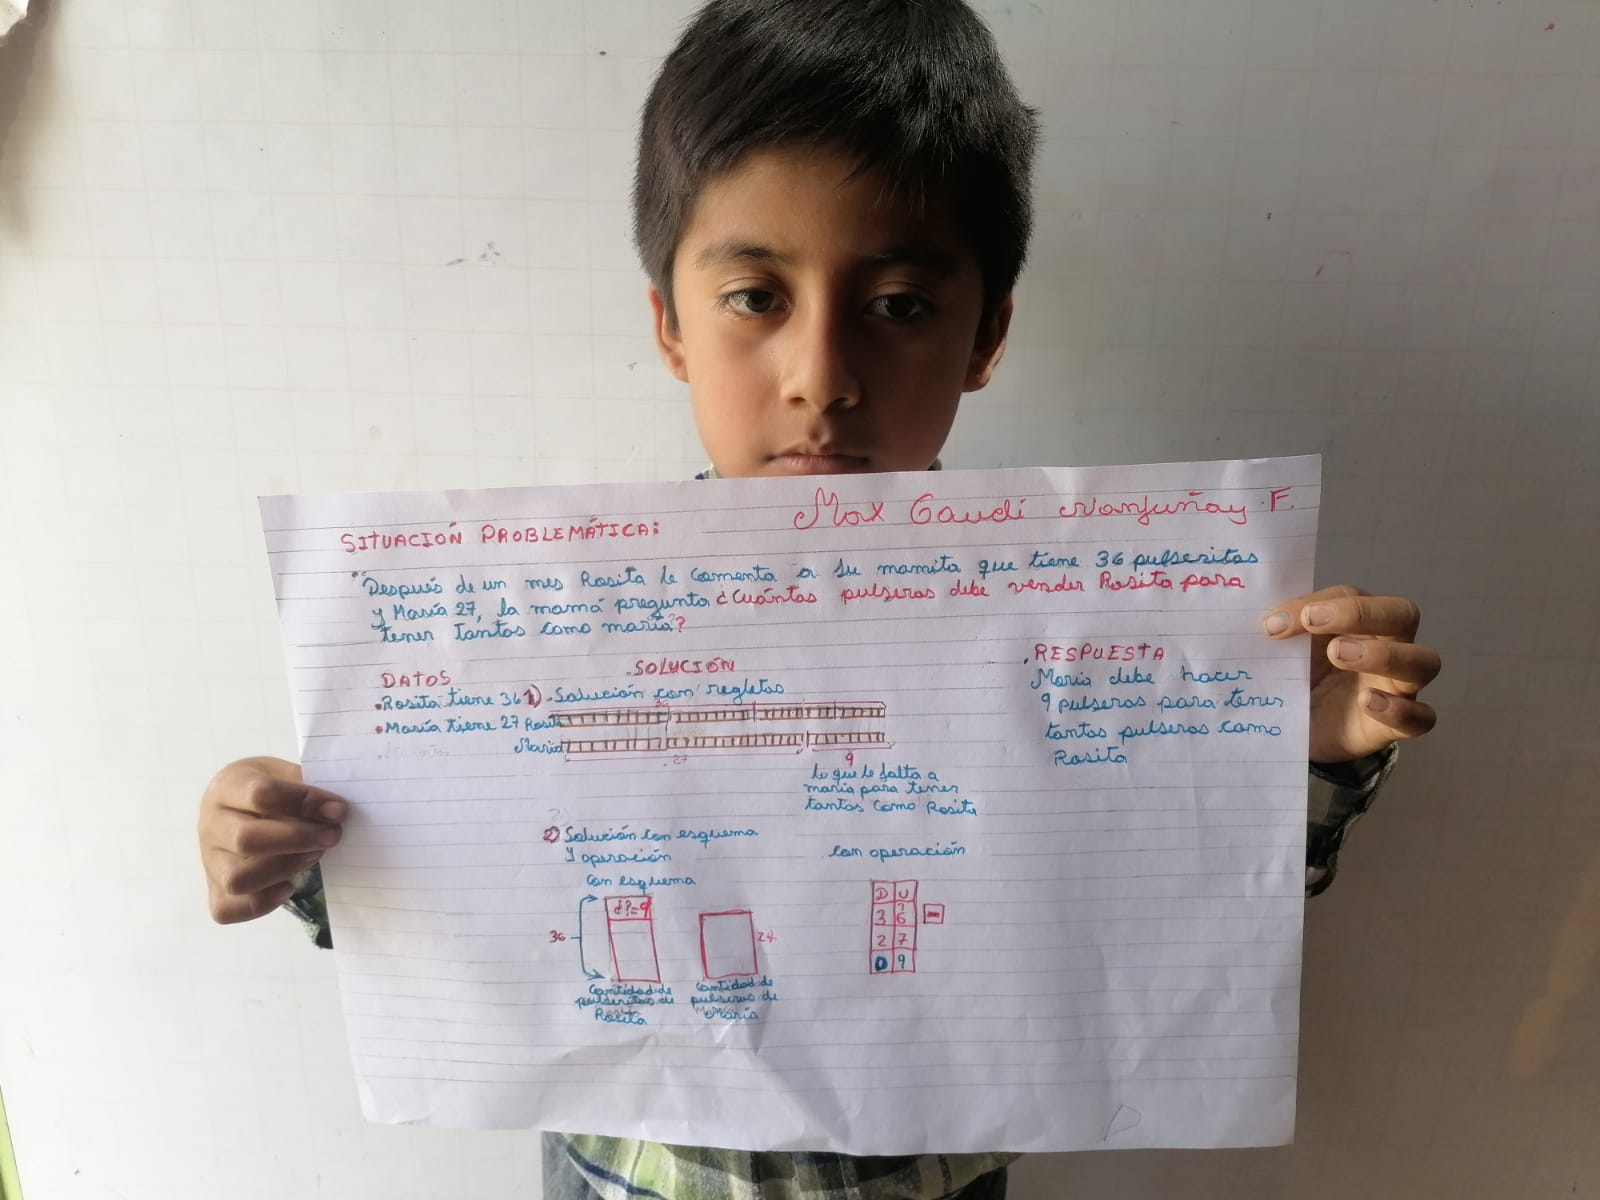 Max Gaudi Ñanfuñay F.
SITUACIÓN PROBLEMÁTICA:
"Después de un mes Rosita le comenta a su mamita que tiene 36 pulseritas
y María 27, la mamá pregunta ¿Cuántas pulseras debe vender Rosita para
tener tantos como maría?
DATOS
.Rosita tiene 36
.María tiene 27
SOLUCIÓN
1) Solución con regletas
36
Rosita
María
27
9
lo que le falta a
maría para tener
tantos como Rosita
2) Solución con esquema
y operación
con esquema
¿?=9
36
27
Cantidad de
pulseritas de
Rosita
Cantidad de
pulseras de
María
con operación
D U
3 6 -
2 7
0 9
.RESPUESTA
Maria debe hacer
9 pulseras para tener
tantas pulseras como
Rosita